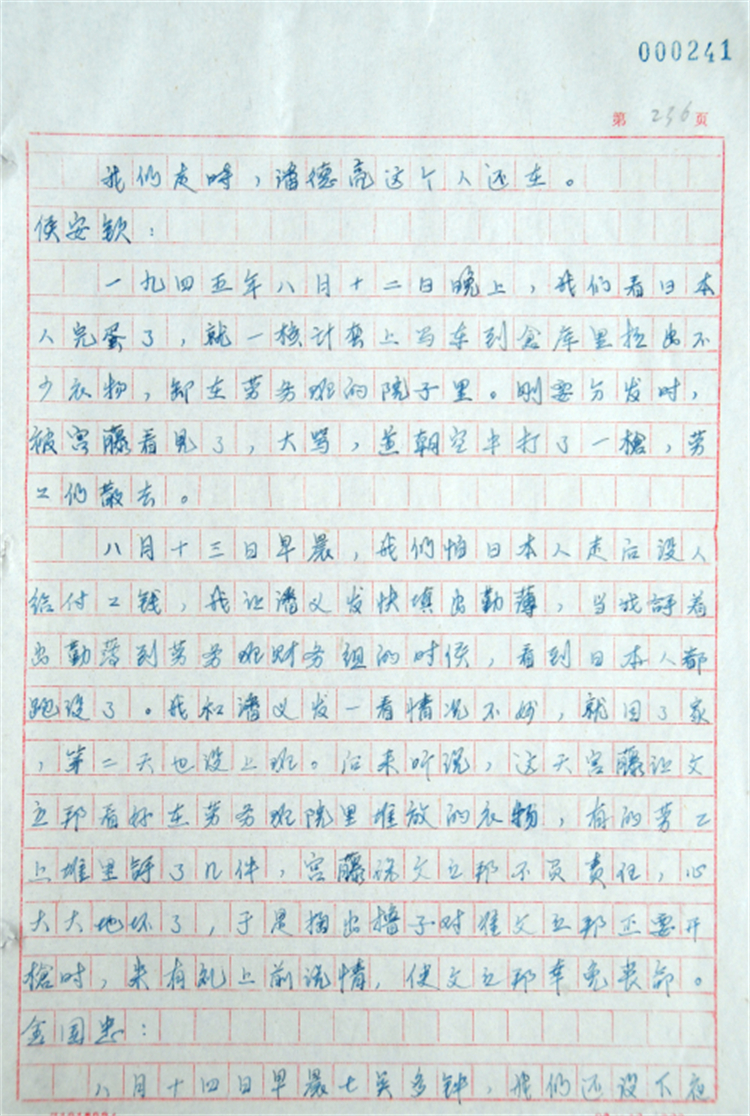 000241
第 236 页
我们走时，潘德亮这个人还在。
侯安钦：
一九四五年八月十二日晚上，我们看日本
人完蛋了，就一核计套上马车到仓库里拉出不
少衣物，卸在劳务班的院子里。刚要分发时，
被宫藤看见了，大骂，并朝空中打了一槍，劳
工们散去。
八月十三日早晨，我们怕日本人走后没人
给付工钱，我让潘义发快填出勤薄，当我拿着
出勤薄到劳务班财务组的时侯，看到日本人都
跑没了。我和潘义发一看情况不妙，就回了家
，第二天也没上班。后来听说，这天宫藤让文
立邦看好在劳务班院里堆放的衣物，有的劳工
上堆里拿了几件，宫藤说文立邦不负责任，心
大大地坏了，于是掏出槍子对准文立邦正要开
槍时，朱有礼上前说情，使文立邦幸免丧命。
金国忠：
八月十四日早晨七点多钟，我们还没下夜